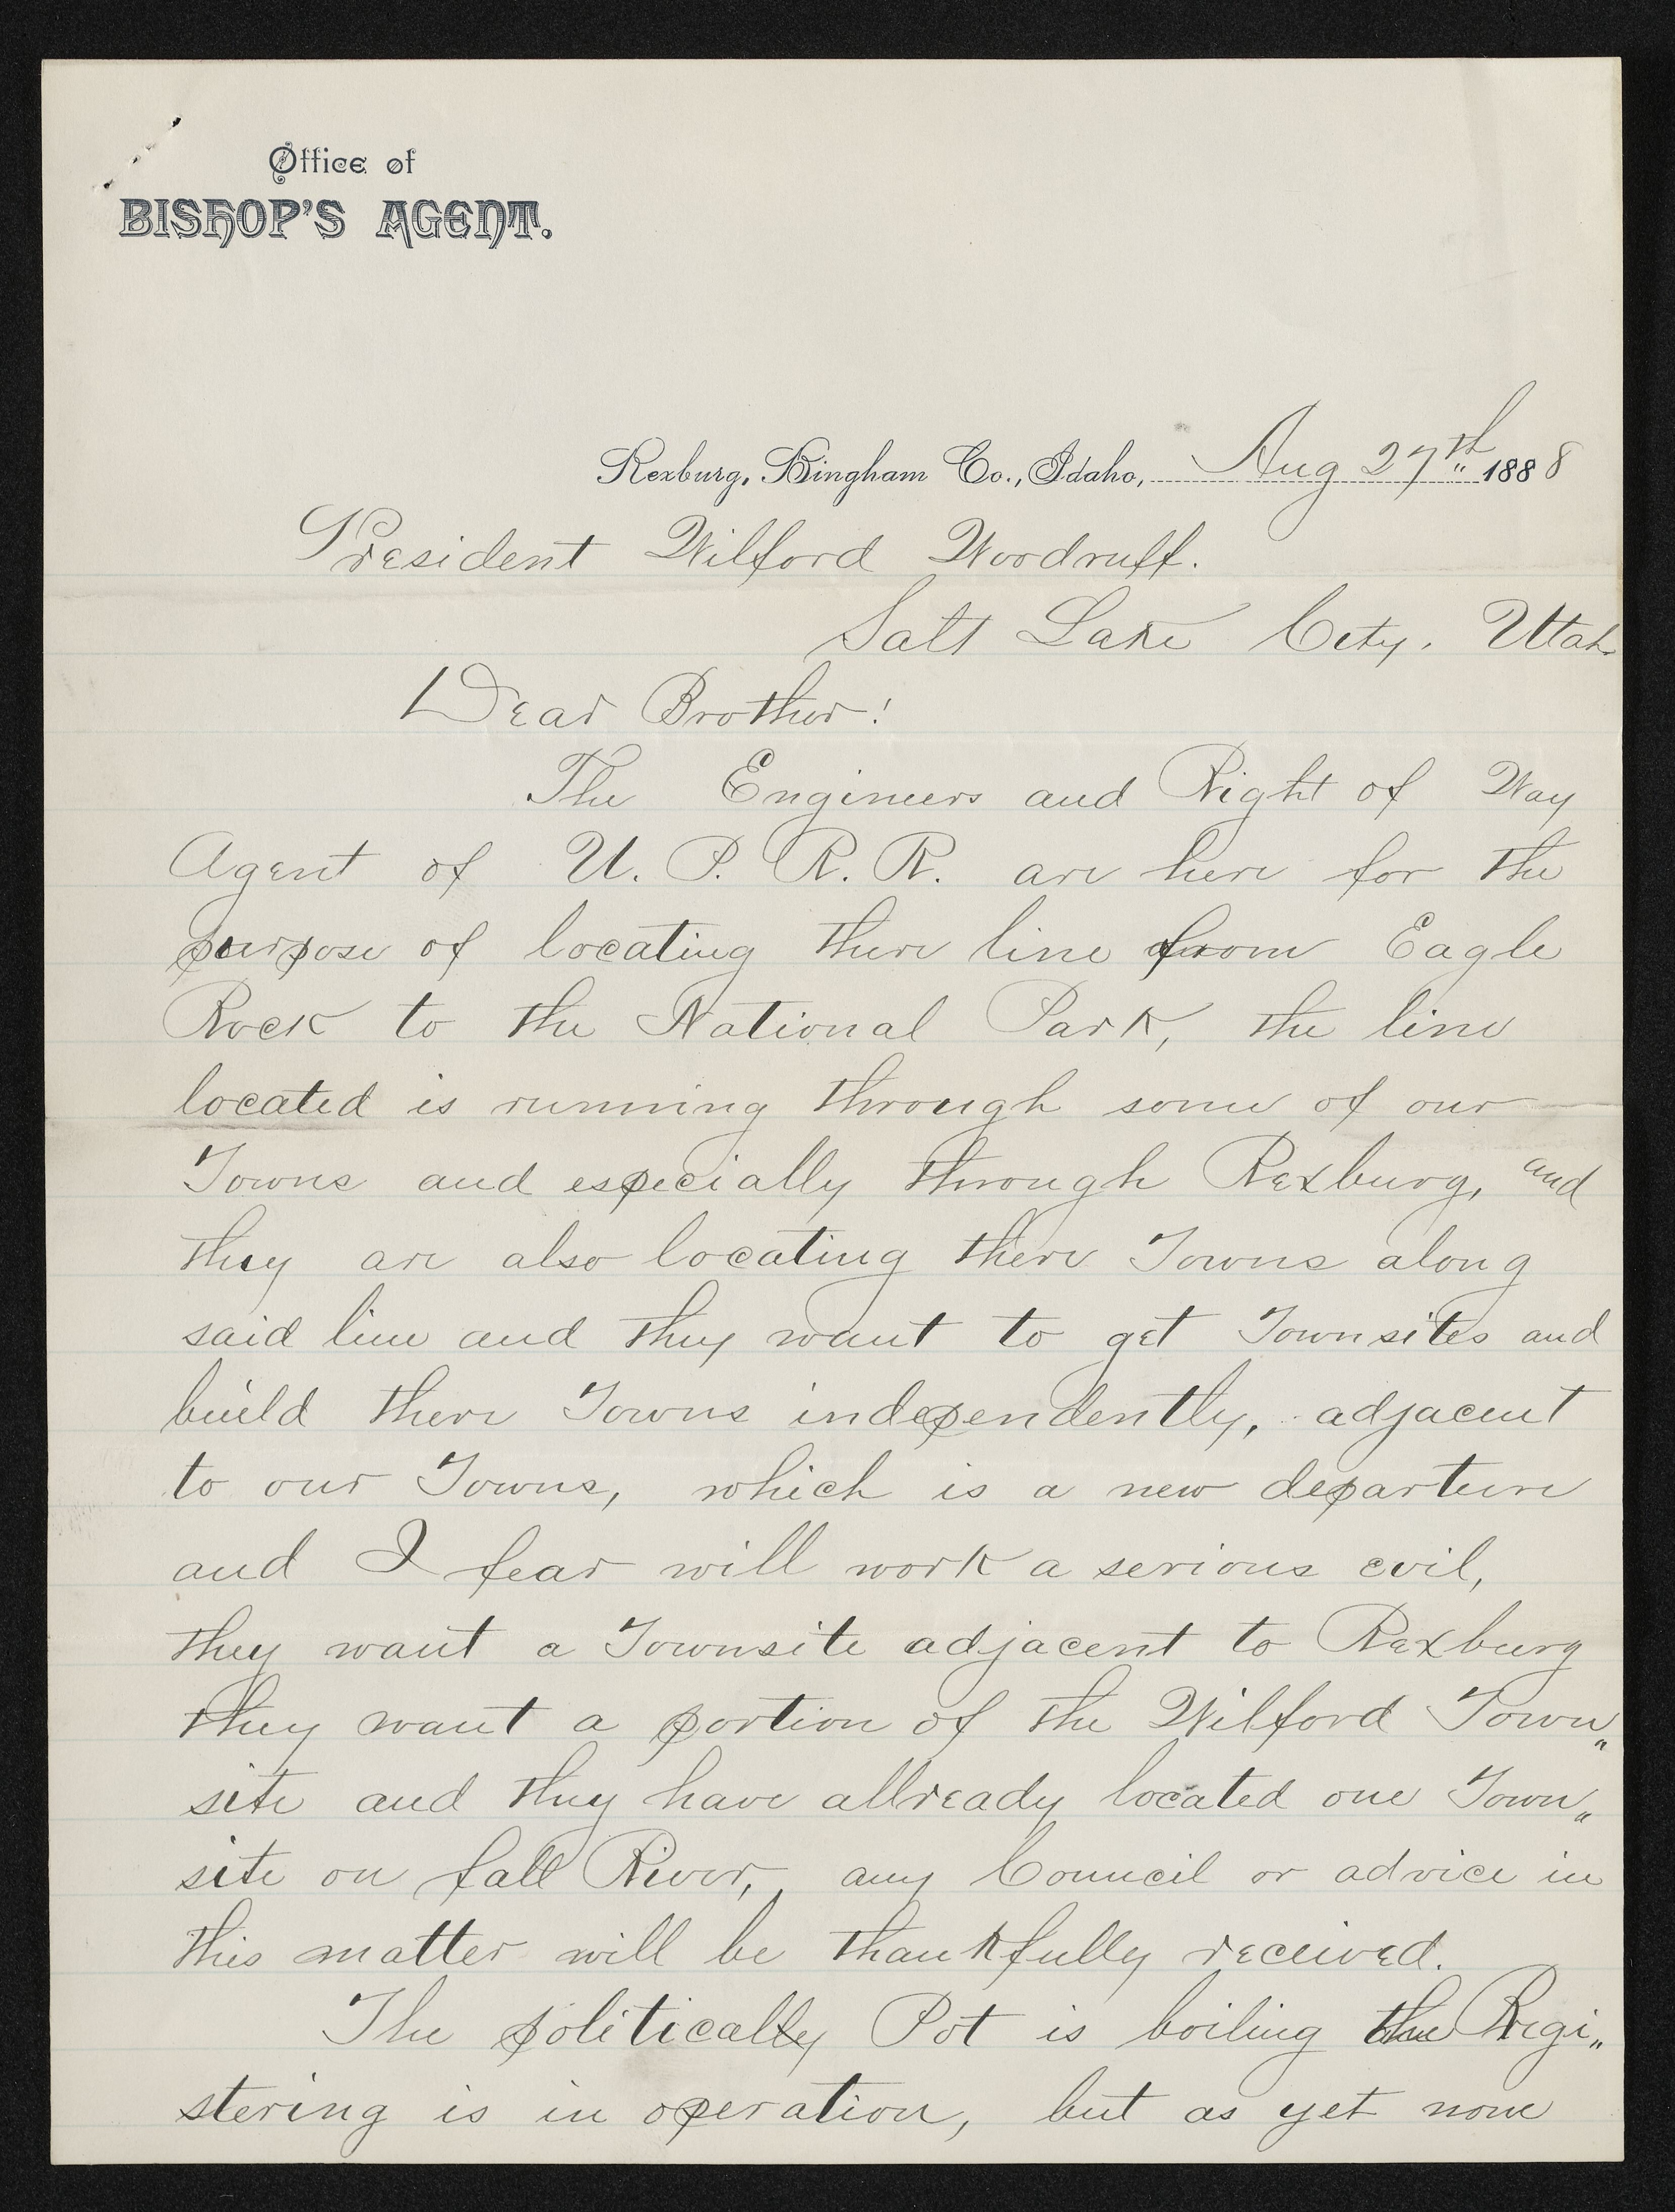 Office of
BISHOP'S AGENT.
Rexburg, Bingham Co., Idaho, Aug 27th 1888
President Wilford Woodruff.
Salt Lake City. Utah
Dear Brother!
The Engineers and Right of Way
Agent of U. P. R. R. are here for the
purpose of locating there line from Eagle
Rock to the National Park, the line
located is running through some of our
Towns and especially through Rexburg, and
they are also locating there Towns along
said line and they want to get Townsites and
build there Towns independently, adjacent
to our Towns, which is a new departure
and I fear will work a serious evil,
they want a Townsite adjacent to Rexburg
they want a portion of the Wilford Town"
site and they have allready located one Town"
site on fall River, any Council or advice in
this matter will be thankfully received.
The politically Pot is boiling the Regi"
stering is in operation, but as yet none